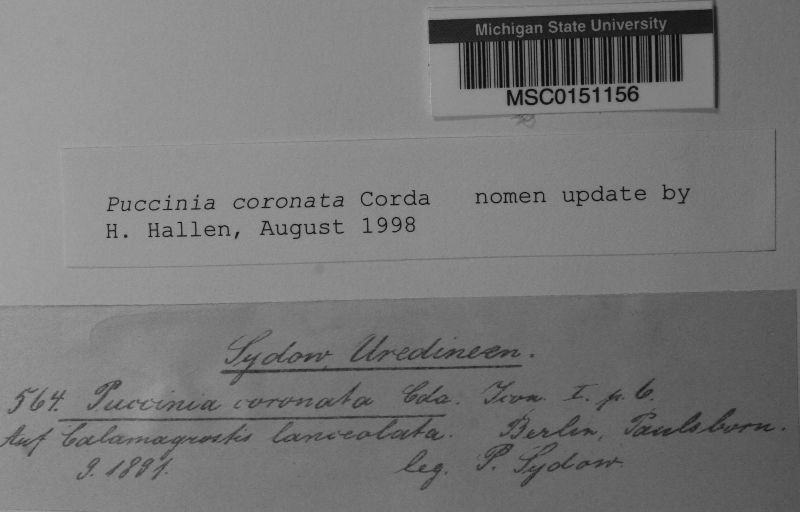 Michigan State University
MSC0151156
Puccinia coronata Corda nomen update by
H. Hallen, August 1998
Sydow, Uredineen.
564. Puccinia coronata Cda. Icon. I. p. 6.
Auf Calamagrostis lanceolata. Berlin, Paulsborn.
9. 1891. leg. P. Sydow.